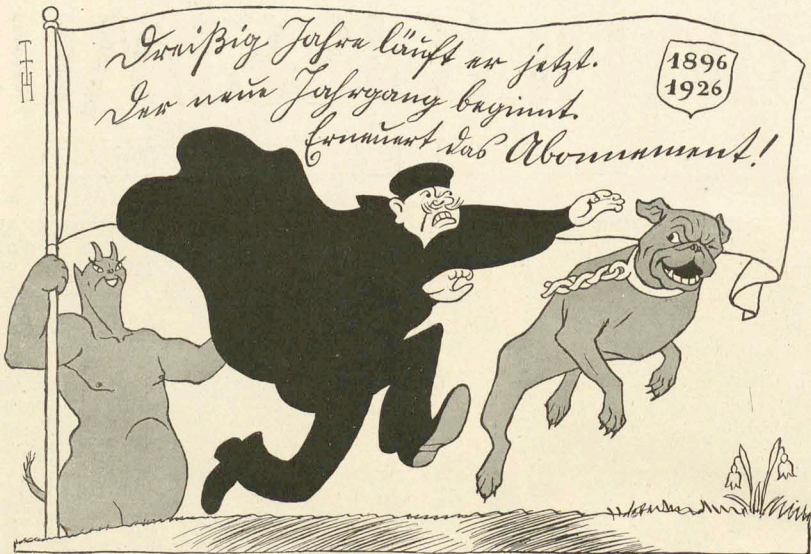 Dreißig Jahre läuft er jetzt.
Der neue Jahrgang beginnt.
Erneuert das Abonnement!
1896
1926
TTH